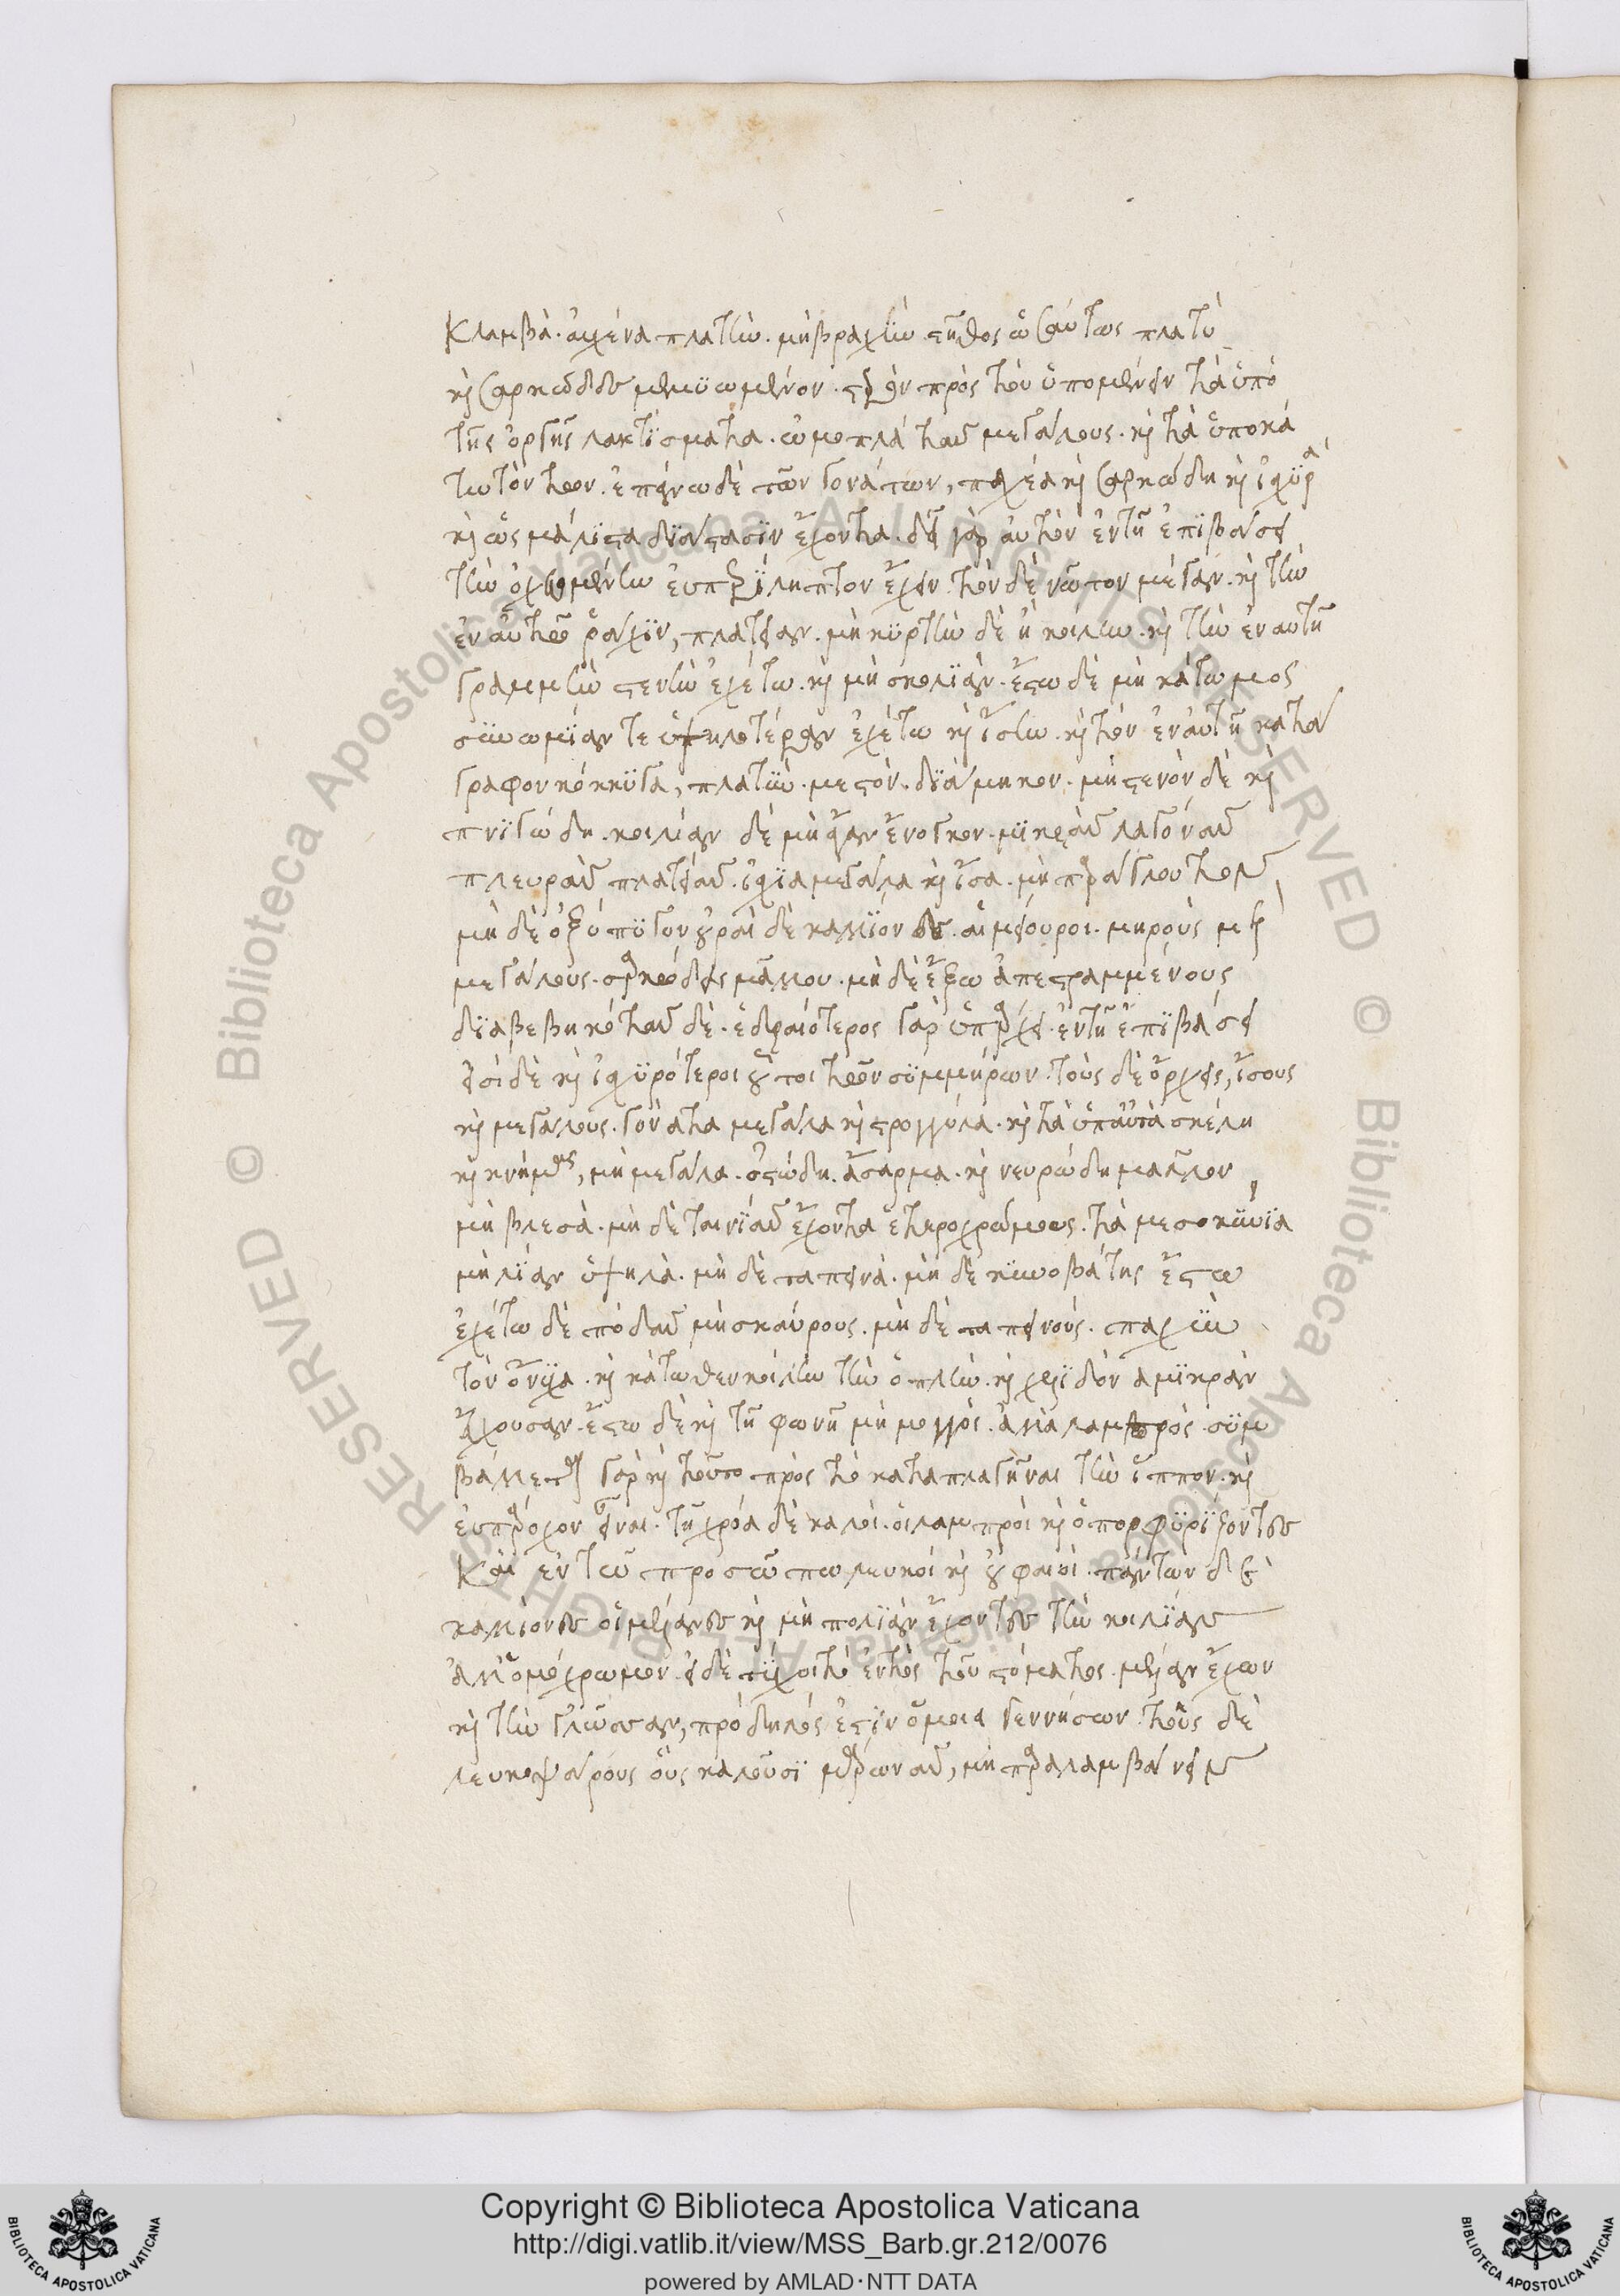 κλαμβὰ. αὐχένα πλατὺν. μὴ βραχὺν. στῆθος ὡσαύτως πλατὺ
καὶ σαρκῶδες μεμυωμένον. πρὸς τὸ ὑπομένειν τὰ ὑπὸ
τῆς ὁρμῆς λακτίσματα. ὠμοπλάτας μεγάλους. καὶ τὰ ὑποκά
τω τούτων. ἐπάνω δὲ τῶν γονάτων, παχέα καὶ σαρκώδη καὶ ἰσχυρὰ
καὶ ὡς μάλιστα διάστασιν ἔχοντα. δεῖ γὰρ αὐτὸν ἐν τῇ ἐπιβάσει
τὴν ὀχευομένην εὐπερίληπτον ἔχειν. τὸν δὲ νῶτον μέγαν. καὶ τὴν
ἐν αὐτῷ ῥάχιν, πλατεῖαν. μὴ κυρτὴν δὲ ἢ κοίλην. καὶ τὴν ἐν αὐτῇ
γραμμὴν στενὴν ἐχέτω. καὶ μὴ σκολιὰν. ἔστω δὲ μὴ κάτωμος
συνωμίαν τε ὑψηλοτέραν ἐχέτω καὶ ἴσην. καὶ τὸν ἐν αὐτῇ κατά
γραφον κόκκυγα, πλατὺν. μεστὸν. διάμηκον. μὴ στενὸν δὲ καὶ
πνιγώδη. κοιλίαν δὲ μὴ ἄγαν ἔνογκον. μικρὰς λαγόνας
πλευρὰς πλατείας. ἰσχία μεγάλα καὶ ἴσα. μὴ παράγλουτον
μὴ δὲ ὀξύπυγον οὐραὶ δὲ καλλίονες. αἱ μείουροι. μηροὺς μὴ
μεγάλους. σαρκώδεις μᾶλλον. μὴ δὲ ἔξω ἀπεστραμμένους
διαβεβηκότας δὲ. ἑδραιότερος γὰρ ὑπάρχει ἐν τῇ ἐπιβάσει
εἰσὶ δὲ καὶ ἰσχυρότεροι οὗτοι τῶν συμμήρων. τοὺς δὲ ὄρχεις, ἴσους
καὶ μεγάλους. γόνατα μεγάλα καὶ στρογγύλα. καὶ τὰ ὑπ' αὐτὰ σκέλη
καὶ κνήμας, μὴ μεγάλα. ὀστώδη. ἄσαρκα. καὶ νευρώδη μᾶλλον
μὴ βλεσὰ. μὴ δὲ ταινίας ἔχοντα ἑτεροχρώμους. τὰ μεσοκύνια
μὴ λίαν ὑψηλὰ. μὴ δὲ ταπεινά. μὴ δὲ κυνοβάτης ἔστω
ἐχέτω δὲ πόδας μὴ σκαύρους. μὴ δὲ ταπεινούς. παχὺν
τὸν ὄνυχα. καὶ κάτωθεν κοίλην τὴν ὁπλὴν. καὶ χελιδόνα μικρὰν
ἔχουσαν. ἔστω δὲ καὶ τῇ φωνῇ μὴ μογγός. ἀλλὰ λαμπρὸς. συμ
βάλλεται γὰρ καὶ τοῦτο πρὸς τὸ καταπλαγῆναι τὴν ἵππον. καὶ
εὐπάροχον εἶναι. τῇ χρόᾳ δὲ καλοὶ. οἱ λαμπροὶ καὶ ὁπορφυρίζοντες
Καὶ ἐν τῷ προσώπω λευκοὶ καὶ οὐ φαιοὶ. πάντων δὲ
καλλίονες οἱ μέλανες καὶ μὴ πολιὰν ἔχοντες τὴν κοιλίαν
ἀλλ' ὁμόχρωμον. εἰ δὲ τύχοι τὸ ἐντὸς τοῦ στόματος. μέλαν ἔχων
καὶ τὴν γλῶσσαν, πρόδηλός ἐστιν ὅμοια γεννήσων. τοὺς δὲ
λευκοψάρους οὓς καλοῦσι μαρώνας, μὴ παραλαμβάνειν